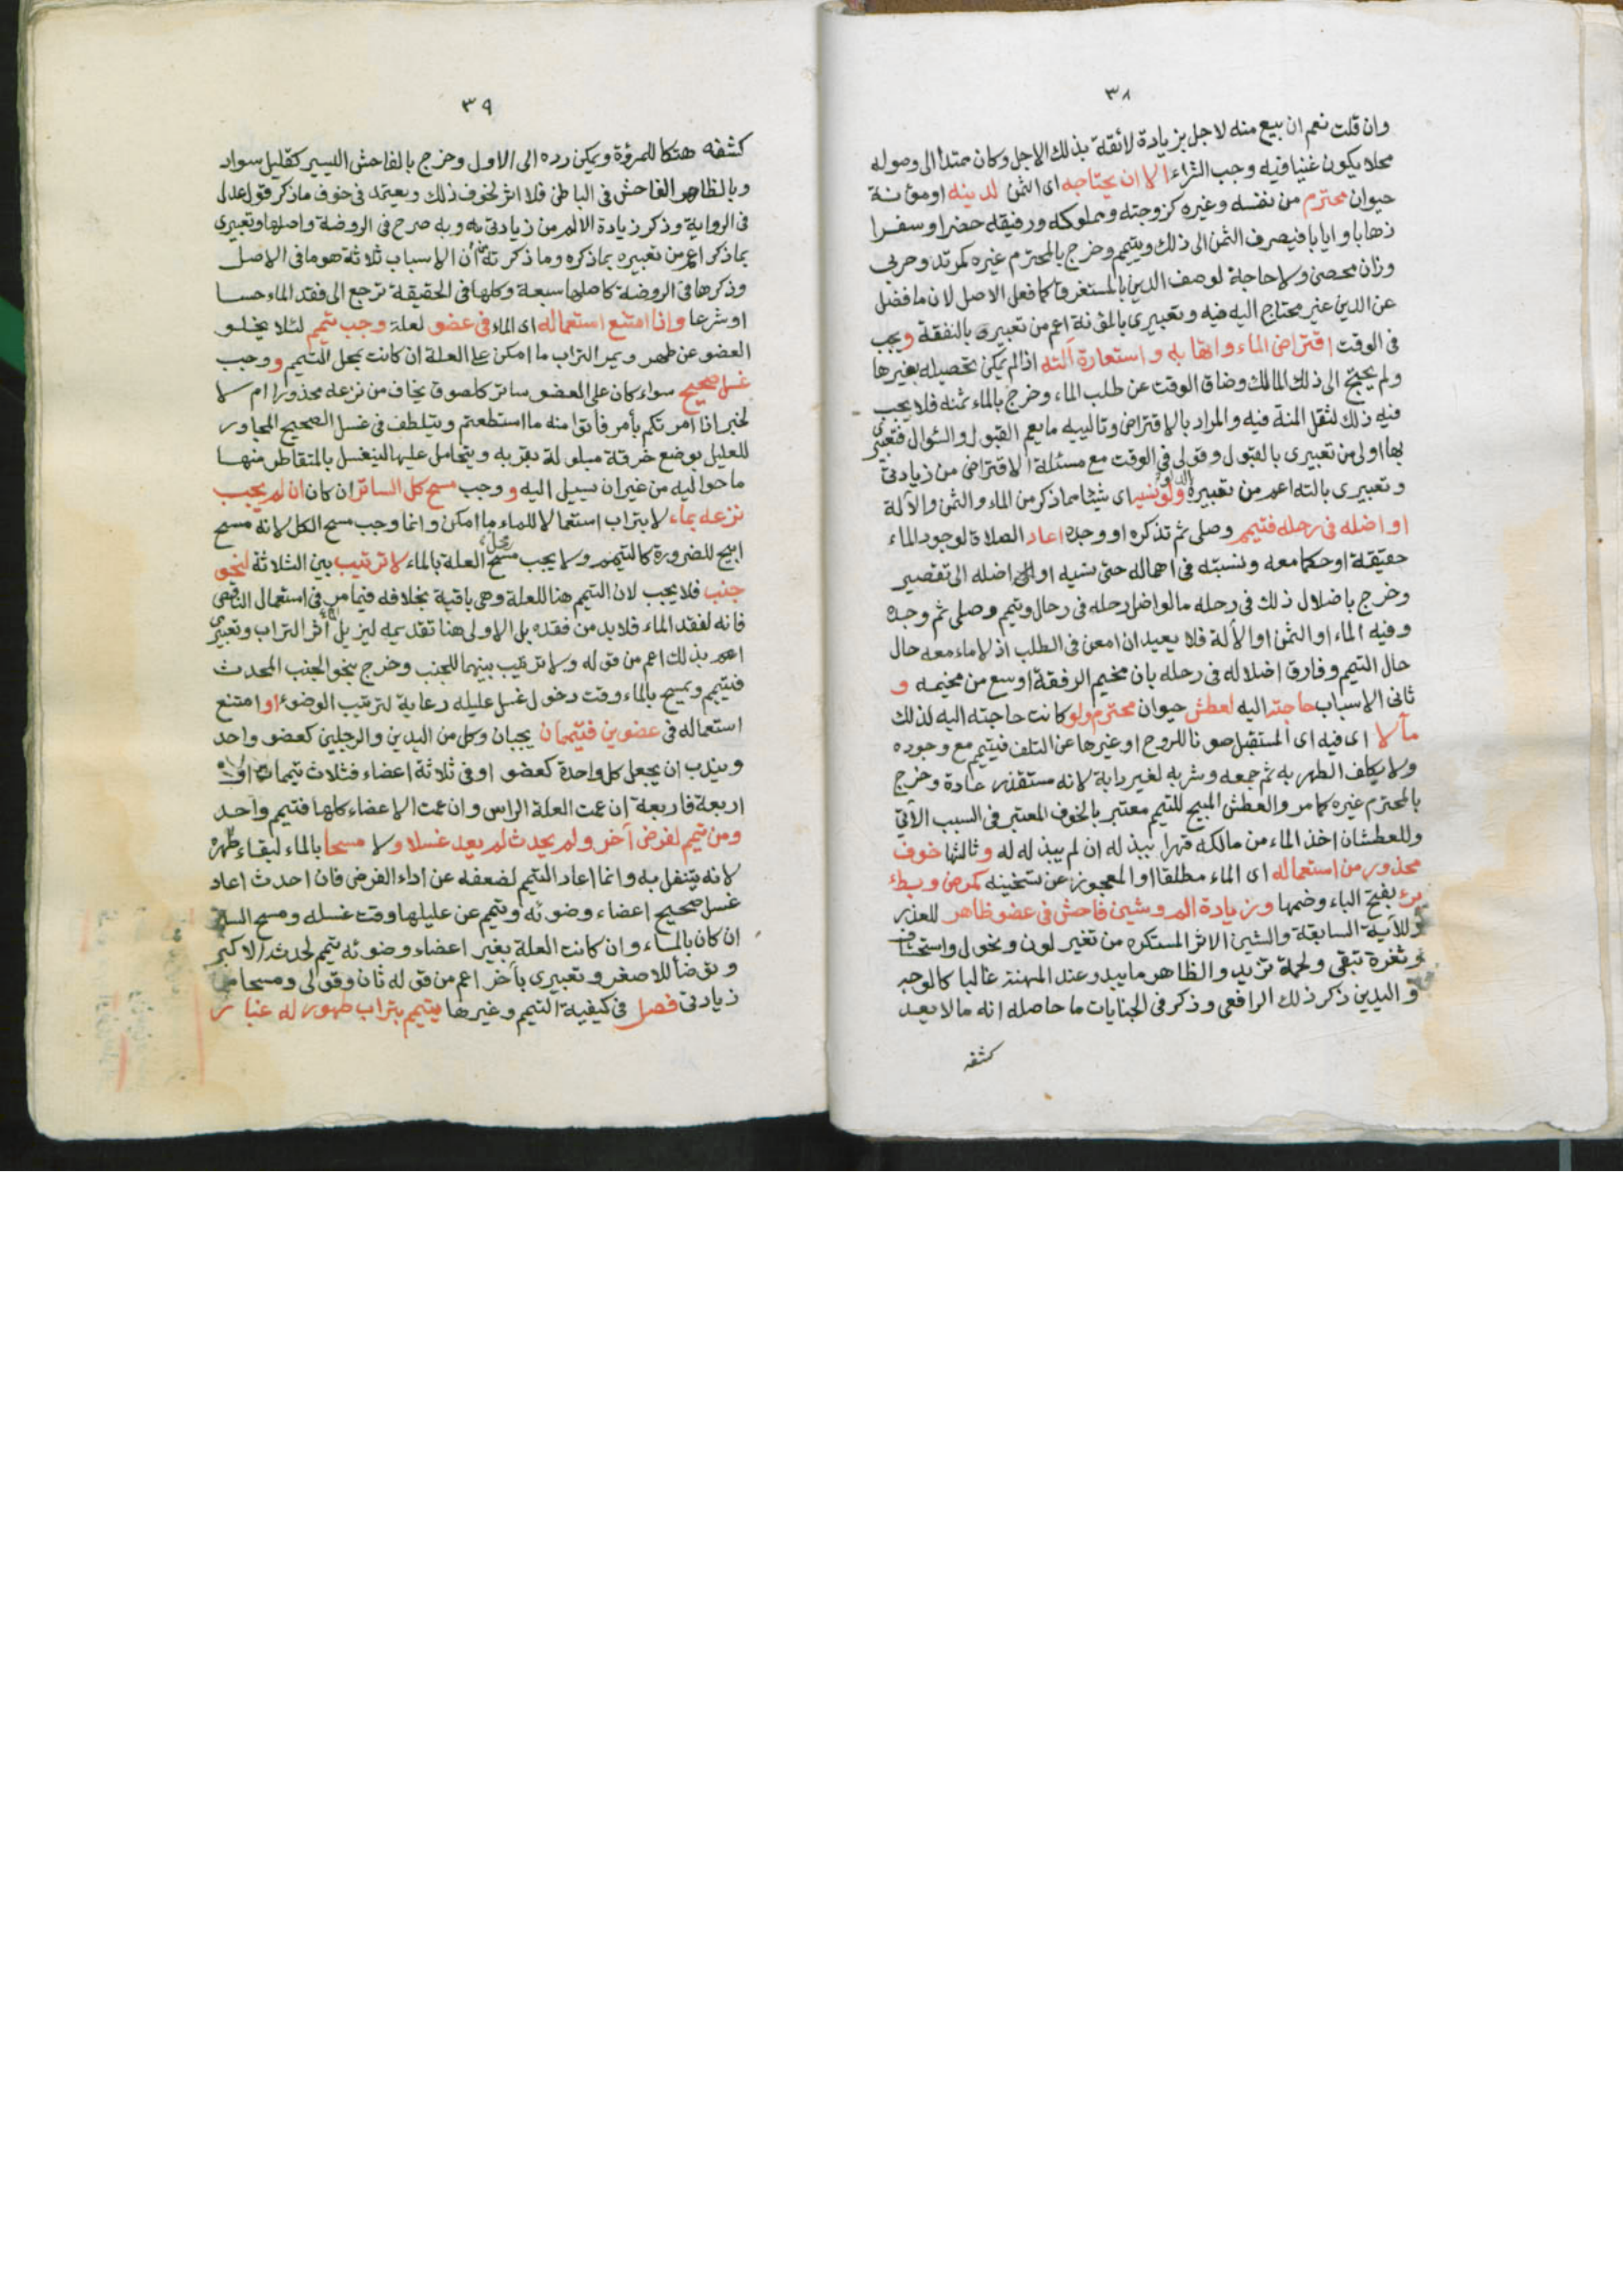 ٣٨
وان قلت نعم ان بيع منه لاجل بزيادة لائقة بذلك الاجل وكان ممتدا الى وصوله
محلا يكون غنيا فيه وجب الشراء الا ان يحتاجه اى الثمن لدينه او مؤنة
حيوان محترم من نفسه وغيره كزوجته ومملوكه ورفيقه حضرا وسفرا
ذهابا وايابا فيصرف الثمن الى ذلك ويتيمم وخرج بالمحترم غيره كمرتد وحربى
وزان محصن ولا حاجة لوصف الدين بالمستغرق كما فعل الاصل لان ما فضل
عن الدين غير محتاج اليه فيه وتعبيرى بالمؤنة اعم من تعبيره بالنفقة ويجب
فى الوقت اقتراض الماء واتهابه واستعارة آلته اذا لم يمكن تحصيله بغيرها
ولم يحتج الى ذلك المالك وضاق الوقت عن طلب الماء وخرج بالماء ثمنه فلا يجب
فيه ذلك لثقل المنة فيه والمراد بالاقتراض وتالييه ما يعم القبول والسؤال فتعبيرى
بها اولى من تعبيرى بالقبول وقولى فى الوقت مع مسئلة الاقتراض من زيادتى
وتعبيرى بآلته اعم من تعبيره ولو نسيه اى شيئا مما ذكر من الماء والثمن والآلة
او اضله فى رحله فتيمم وصلى ثم تذكره او وجده اعاد الصلاة لوجود الماء
حقيقة او حكما معه ونسبته فى اهماله حتى نسيه او اضله الى تقصير
وخرج باضلال ذلك فى رحله ما لو اضل رحله فى رحال وتيمم وصلى ثم وجده
وفيه الماء او الثمن او الآلة فلا يعيد ان امعن فى الطلب اذ لا ماء معه حال
حال التيمم وفارق اضلاله فى رحله بان مخيم الرفقة اوسع من مخيمه و
ثانى الاسباب حاجته اليه لعطش حيوان محترم ولو كانت حاجته اليه لذلك
مآلا اى فيه اى المستقبل صونا للروح او غيرها عن التلف فيتيمم مع وجوده
ولا يكلف الطهر به ثم جمعه وشربه لغير دابة لانه مستقذر عادة وخرج
بالمحترم غيره كما مر والعطش المبيح للتيمم معتبر بالخوف المعتبر فى السبب الآتى
وللعطشان اخذ الماء من مالكه قهرا ببذله ان لم يبذله له وثالثها خوف
محذور من استعماله اى الماء مطلقا او المعجوز عن تسخينه كمرض وبطء
برء بفتح الباء وضمها وزيادة الم وشين فاحش فى عضو ظاهر للعذر
وللآية السابقة والشين الاثر المستكره من تغير لون ونحول واستحشاف
وثغرة تبقى ولحمة تزيد والظاهر ما يبدو عند المهنة غالبا كالوجه
واليدين ذكر ذلك الرافعى وذكر فى الجنايات ما حاصله انه ما لا يعد
كشفه
٣٩
كشفه هتكا للمرؤة ويمكن رده الى الاول وخرج بالفاحش اليسير كقليل سواد
وبالظاهر الفاحش فى الباطن فلا اثر لخوف ذلك ويعتمد فى خوف ما ذكر قول عدل
فى الرواية وذكر زيادة الالم من زيادتى وبه صرح فى الروضة واصلها وتعبيرى
بما ذكر اعم من تعبيره بما ذكره وما ذكرته من ان الاسباب ثلاثة هو ما فى الاصل
وذكرها فى الروضة كاصلها سبعة وكلها فى الحقيقة ترجع الى فقد الماء حسا
او شرعا واذا امتنع استعماله اى الماء فى عضو لعلة وجب تيمم لئلا يخلو
العضو عن طهر ويمر التراب ما امكن على العلة ان كانت بمحل التيمم و وجب
غسل صحيح سواء كان على العضو ساتر كلصوق يخاف من نزعه محذورا ام لا
لخبر اذا امرتكم بأمر فأتوا منه ما استطعتم ويتلطف فى غسل الصحيح المجاور
للعليل بوضع خرقة مبلولة بقربه ويتحامل عليها لينغسل بالمتقاطر منها
ما حواليه من غير ان يسيل اليه و وجب مسح كل الساتر ان كان ان لم يجب
نزعه بماء لا بتراب استعمالا للماء ما امكن وانما وجب مسح الكل لانه مسح
ابيح للضرورة كالتيمم ولا يجب مسح محل العلة بالماء لا ترتيب بين الثلاثة لنحو
جنب فلا يجب لان التيمم هنا للعلة وهى باقية بخلافه فيما مر فى استعمال الناقص
فانه لفقد الماء فلا بد من فقده بل الاولى هنا تقديمه ليزيل الماء أثر التراب وتعبيرى
بذلك اعم من قوله ولا ترتيب بينهما للجنب وخرج بنحو الجنب المحدث
فيتيمم ويمسح بالماء وقت دخول غسل عليله رعاية لترتيب الوضوء او امتنع
استعماله فى عضوين فتيممان يجبان وكل من اليدين والرجلين كعضو واحد
ويندب ان يجعل كل واحدة كعضو او فى ثلاثة اعضاء فثلاث تيممات او
اربعة فاربعة ان عمت العلة الراس وان عمت الاعضاء كلها فتيمم واحد
ومن تيمم لفرض آخر ولم يحدث لم يعد غسلا ولا مسحا بالماء لبقاء طهره
لانه يتنفل به وانما اعاد التيمم لضعفه عن اداء الفرض فان احدث اعاد
غسل صحيح اعضاء وضوئه وتيمم عن عليلها وقت غسله ومسح الساتر
ان كان بالماء وان كانت العلة بغير اعضاء وضوئه تيمم لحدث الاكبر
وتوضأ للاصغر وتعبيرى بآخر اعم من قوله ثان وقولى ومسحا من
زيادتى فصل فى كيفية التيمم وغيرها يتيمم بتراب طهور له غبار